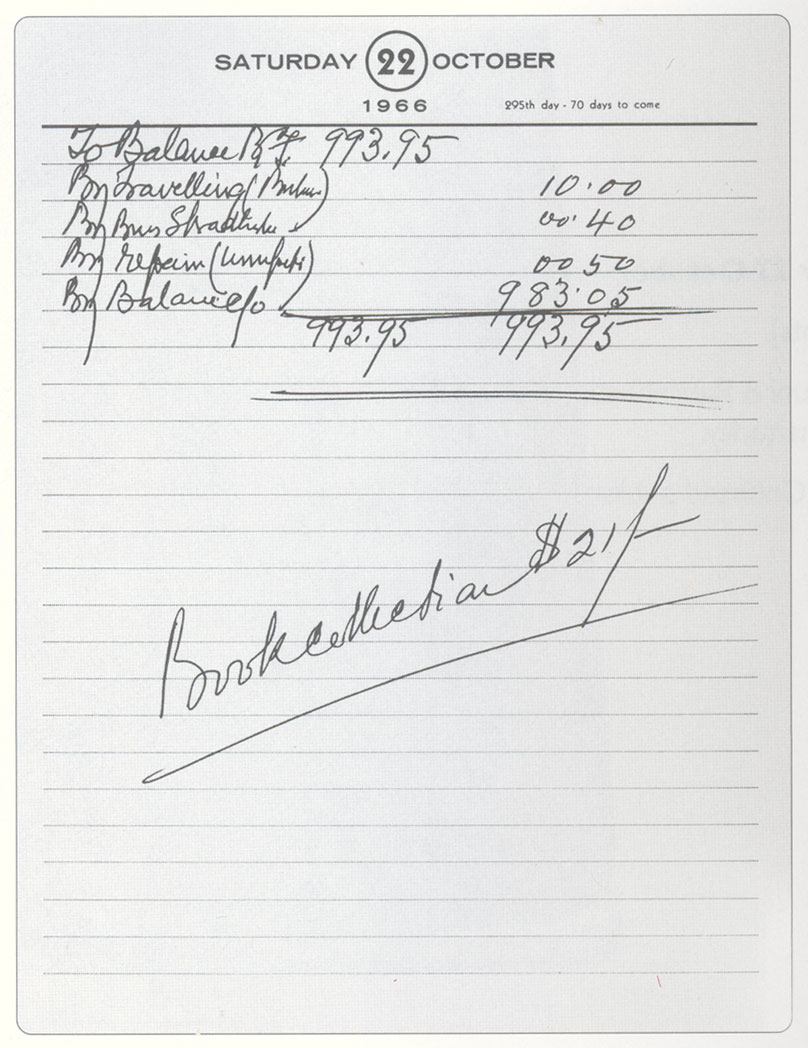 SATURDAY 22 OCTOBER
1966 295th day - 70 days to come
To Balance B/F 993.95
By Travelling ( ) 10.00
By Bus 00.40
By repair ( ) 00 50
By Balance c/o 983.05
993.95 993.95
Book collection $21/-